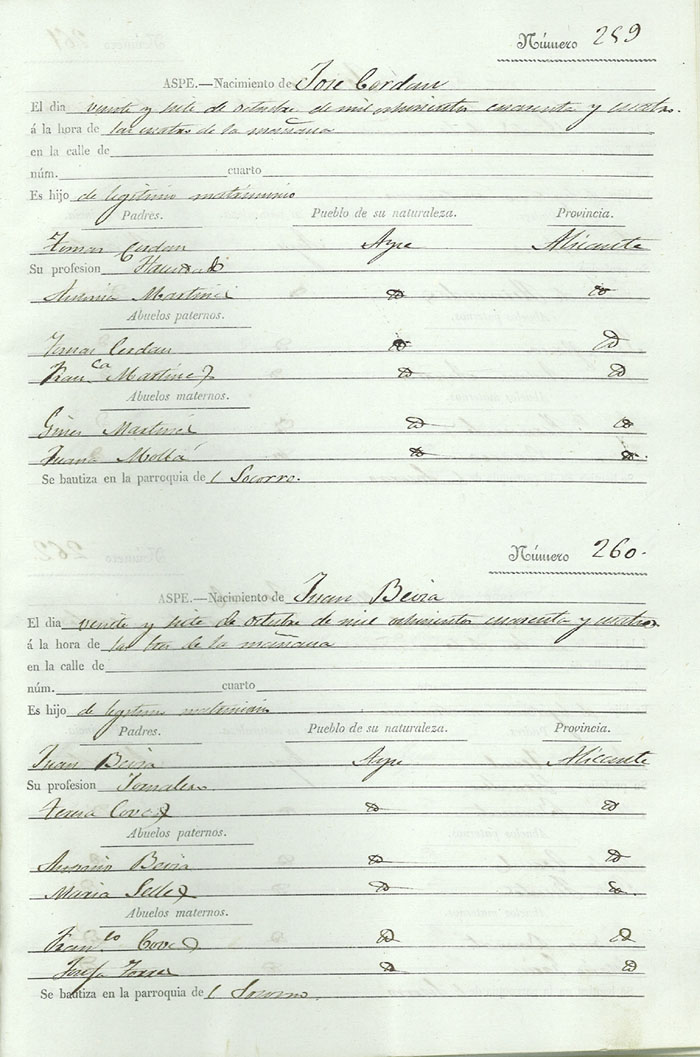 Número 259
ASPE.—Nacimiento de Jose Cerdan
El dia veinte y siete de octubre de mil ochocientos cuarenta y cuatro.
á la hora de las cuatro de la mañana
en la calle de
núm. cuarto
Es hijo de legitimo matrimonio
Padres. Pueblo de su naturaleza. Provincia.
Tomas Cerdan Aspe Alicante
Su profesion
Antonia Martinez id id
Abuelos paternos.
Tomas Cerdan id id
Fran.ca Martinez id id
Abuelos maternos.
Gines Martinez id id
Juana Mollá id id.
Se bautiza en la parroquia de l Socorro.
Número 260.
ASPE.—Nacimiento de Juan Beviá
El dia veinte y siete de octubre de mil ochocientos cuarenta y cuatro
á la hora de las tres de la mañana
en la calle de
núm. cuarto
Es hijo de legitimo matrimonio
Padres. Pueblo de su naturaleza. Provincia.
Juan Beviá Aspe Alicante
Su profesion Jornalero
Teresa Coves id id
Abuelos paternos.
Antonio Beviá id id
Maria Selles id id.
Abuelos maternos.
Fran.co Coves id id
Josefa Torres id id
Se bautiza en la parroquia de l Socorro.